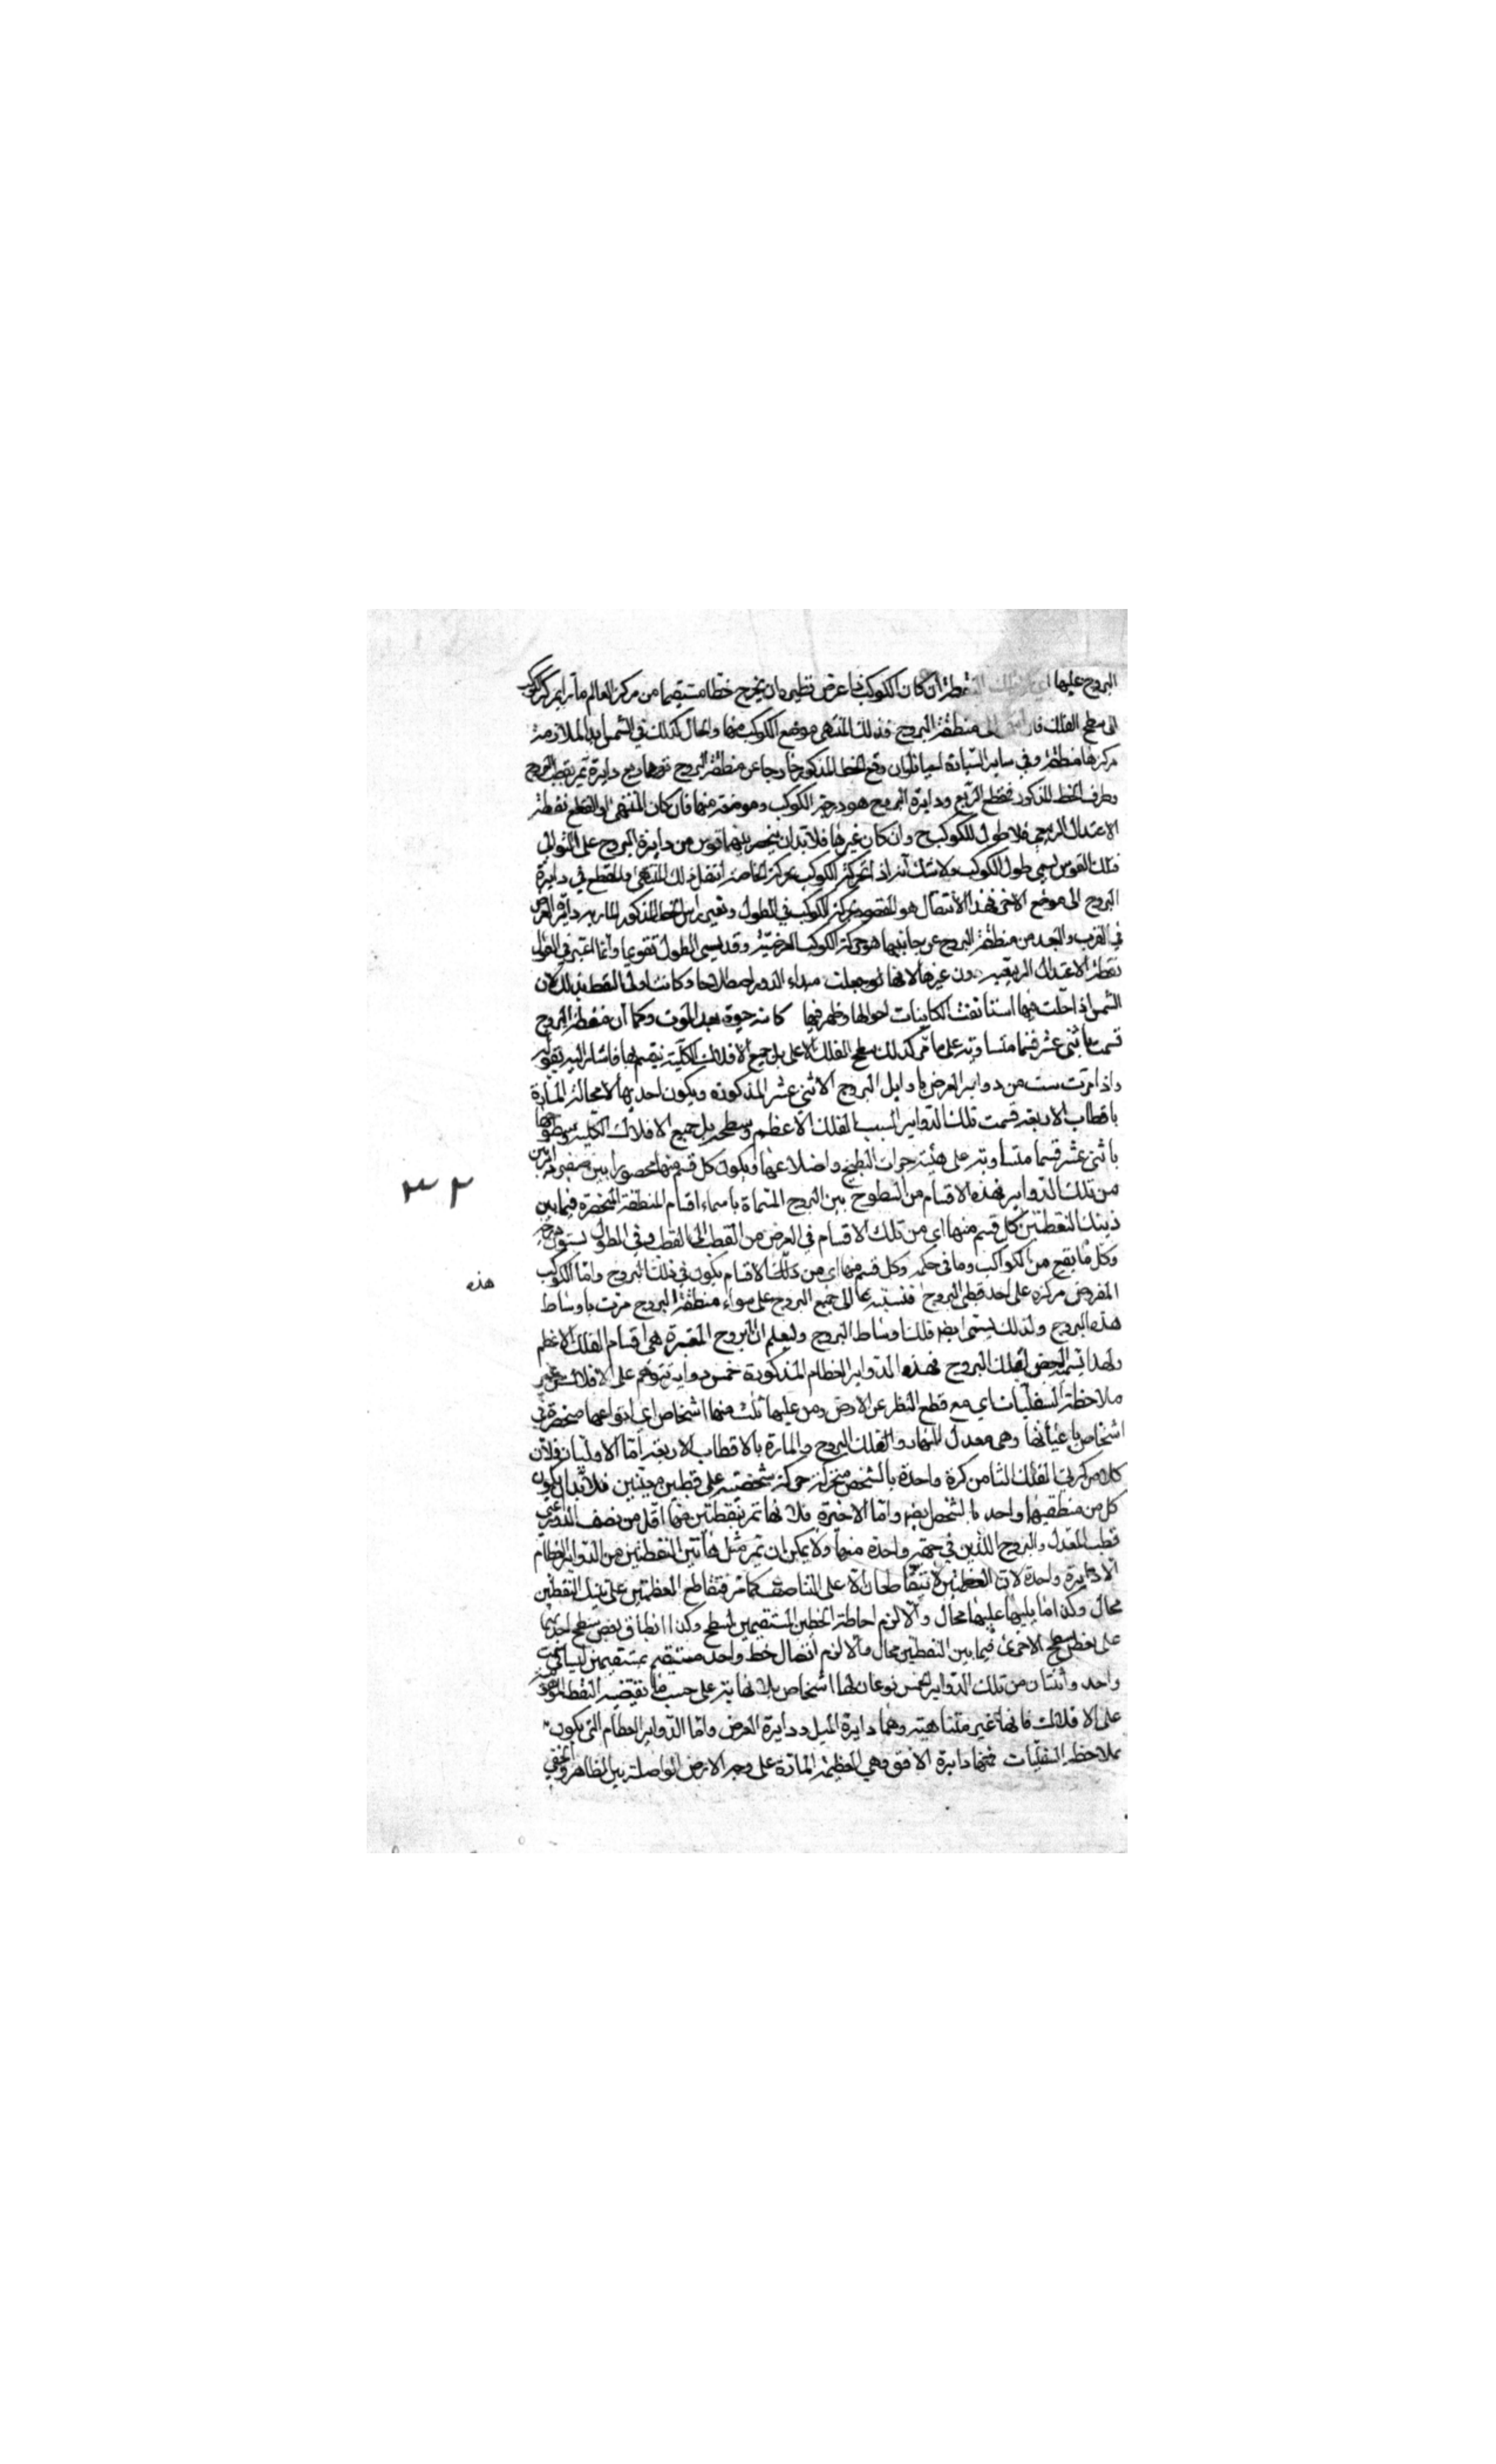 البروج عليها اي نقطة ان كان الكوكب ذا عرض فطريقه ان يخرج خطا مستقيما من مركز العالم مارا بمركز الكوكب
الى سطح الفلك فان انتهى الى منطقة البروج فذلك المنتهى موضع الكوكب منها والحال كذلك في الشمس ابدا لملازمة
مركزها منطقة وفي ساير السيارة احيانا وان وقع الخط المذكور خارجا عن منطقة البروج توهم ربع دايرة تمر بقطب البروج
وطرف الخط المذكور فتقطع الربع ودايرة البروج هو درجة الكوكب وموضعه منها فان كان المنتهى او التقطع نقطة
الاعتدال الربيعي فلا طول للكوكب ح وان كان غيرها فلا بد ان ينحصر بينهما قوس من دايرة البروج على التوالى
فتلك القوس يسمى طول الكوكب ولا شك انه اذا تحرك الكوكب بحركته الخاصة انتقل ذلك المنتهى والتقطع في دايرة
البروج الى موضع الاخر فهذا الانتقال هو المقصود بحركة الكوكب في الطول وتغير راس الخط المذكور المار به دايرة العرض
في القرب والبعد من منطقة البروج عن جانبيها هو حركة الكوكب العرضية وقد يسمى الطول تقويما وانما اعتبر في الطول
نقطة الاعتدال الربيعي دون غيرها لانها توجعلت مبداء الدور اصطلاحا وكانت اولى النقط بذلك لان
الشمس اذا حلت فيها استانفت الكاينات احوالها وظهر فيها كانه حيوة بعد الموت وكما ان منطقة البروج
قسمت باثنى عشر قسما متساوية على ما مر كذلك سطح الفلك الاعلى بل جميع الافلاك الكلية ينقسم بها فاشار اليه بقوله
واذا مرت ست من دواير العرض باوايل البروج الاثنى عشر المذكورة ويكون احديها لا محالة المارة
باقطاب الاربعة قسمت تلك الدواير الست الفلك الاعظم وسطحه بل جميع الافلاك الكلية وسطوحها
باثنى عشر قسما متساوية على هيئة حزات البطيخ واضلاعها ويكون كل قسم منها محصورا بين نصفي دايرتين
من تلك الدواير فهذه الاقسام من السطوح بين البروج المسماة باسماء اقسام المنطقة المنحصرة فيما بين
ذينك النقطتين كل قسم منها اي من تلك الاقسام في العرض من القطب الى القطب وفي الطول ستون درجة
وكل ما يقع من الكواكب وما في حكمه وكل قسم منها اي من تلك الاقسام يكون في ذلك البروج واما الكوكب
المفروض مركزه على احد قطبى البروج فنسبته الى جميع البروج على سواء منطقة البروج مرت باوساط
هذه البروج ولذلك يسمى ايضا فلك اوساط البروج وليعلم ان البروج المعتبرة هي اقسام الفلك الاعظم
ولهذا يسميه البعض لفلك البروج فهذه الدواير العظام المذكورة خمس دواير تتوهم على الافلاك من غير
ملاحظة السفليات اي مع قطع النظر عن الارض ومن عليها ثلث منها اشخاص اي انواعها منحصرة في
اشخاص باعيانها وهي معدل النهار والفلك البروج والمارة بالاقطاب الاربعة اما الاوليان فلان
كلا من كرتي الفلك الثامن كرة واحدة بالشخص متحركة حركة شخصية على قطبين معينين فلا بد ان يكون
كل من منطقتيهما واحد بالشخص ايضا واما الاخيرة فلانها تمر بنقطتين منهما اقل من نصف الدور اعنى
قطب المعدل والبروج اللذين في جهة واحدة منهما ولا يمكن ان تمر مثل هاتين النقطتين من الدواير العظام
الا دايرة واحدة لان العظمتين لا يتقاطعان الا على التناصف كما مر فتقاطع العظمتين على تينك النقطتين
محال وكذا ما يليها عليها محال والا لزم احاطة الخطين المستقيمين بسطح وكذا انطباق بعض سطح احديهما
على بعض سطح الاخرى فيما بين النقطتين محال والا لزم اتصال خط واحد مستقيم بمستقيمين ليسا في سمت
واحد واثنتان من تلك الدواير الخمس نوعان لها اشخاص بلا نهاية على حسب ما تقتضيه النقط المفروضة
على الافلاك فانها غير متناهية وهما دايرة الميل ودايرة العرض واما الدواير العظام التي يكون
بملاحظة السفليات فمنها دايرة الافق وهي العظيمة المارة على وجه الارض الواصلة بين الظاهر والخفى
٣٢
هذه